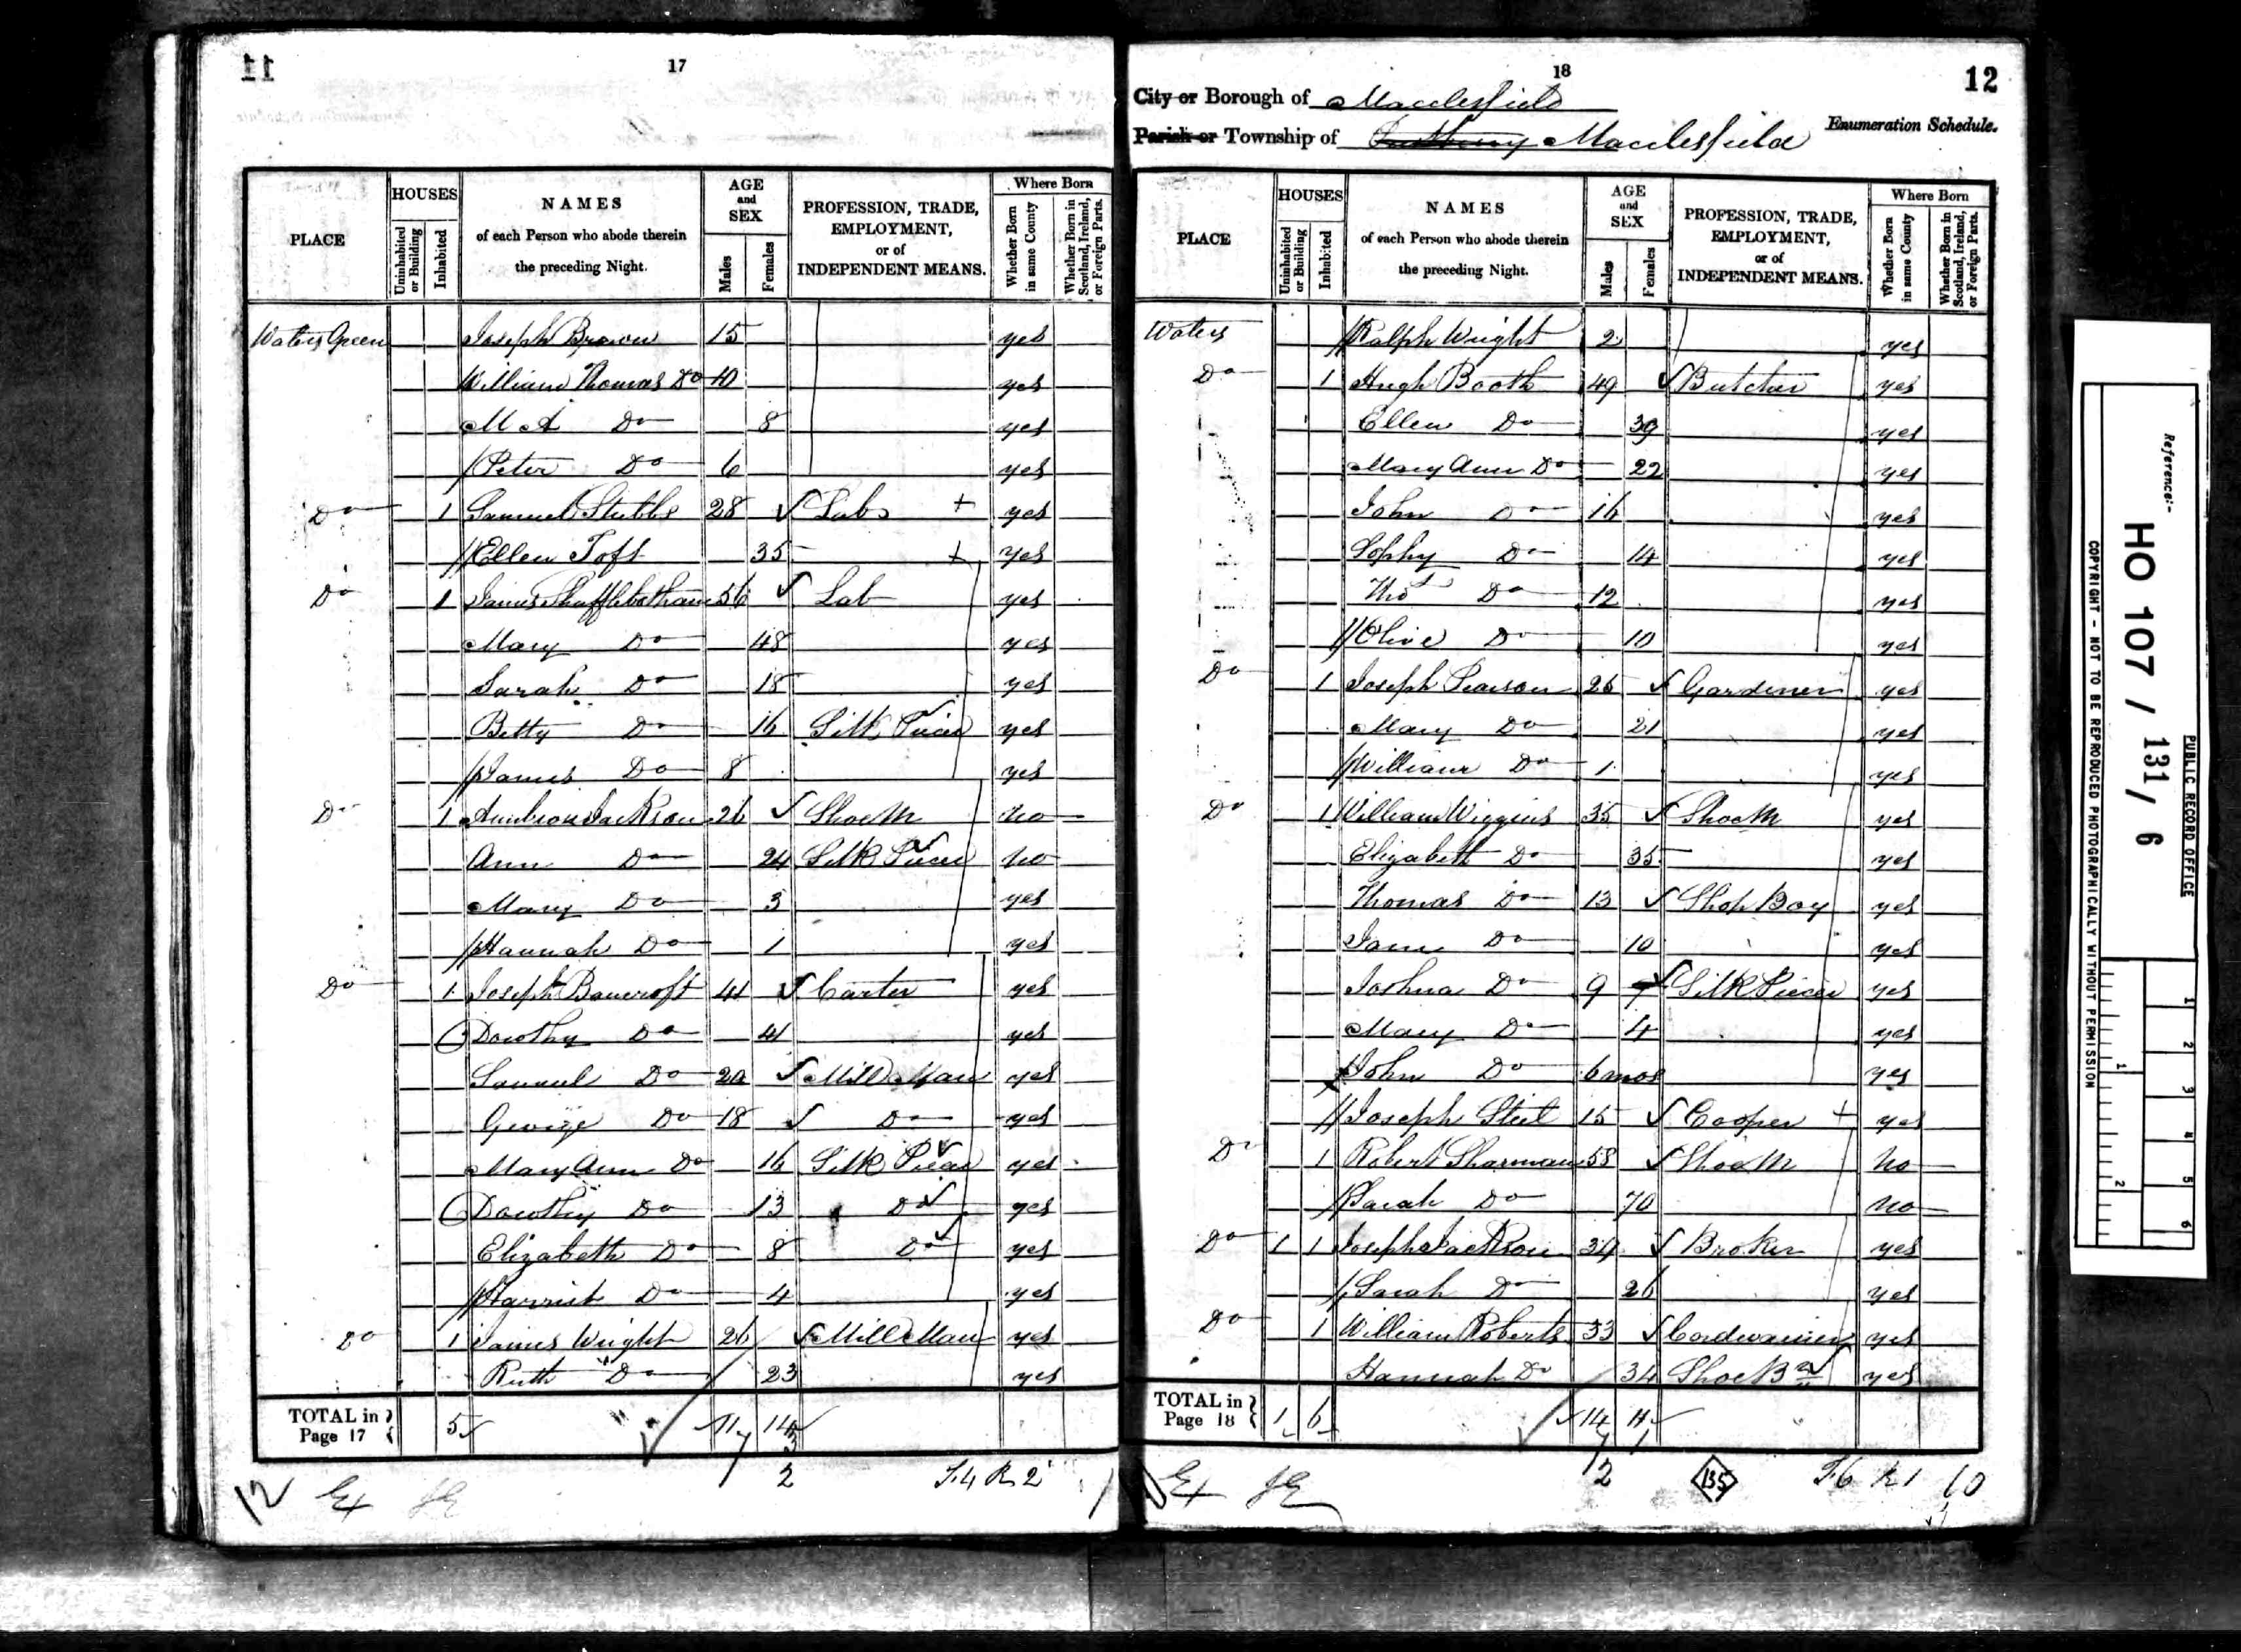 17
HOUSES
AGE
and
SEX
Where Born
PLACE
Uninhabited or Building
Inhabited
NAMES
of each Person who abode therein
the preceding Night.
Males
Females
PROFESSION, TRADE,
EMPLOYMENT,
or of
INDEPENDENT MEANS.
Whether Born in same County
Whether Born in Scotland, Ireland, or Foreign Parts.
Waters Green Joseph Brown 15 yes
William Thomas Do 10 yes
M A Do 8 yes
Peter Do 6 yes
Do 1 Samuel Stubbs 28 Lab + yes
Ellen Toft 35 + yes
Do 1 James Shufflebotham 56 Lab yes
Mary Do 48 yes
Sarah Do 18 yes
Betty Do 16 Silk Piecer yes
James Do 8 yes
Do 1 Ambrose Jackson 26 Shoe M no
Ann Do 24 Silk Piecer no
Mary Do 3 yes
Hannah Do 1 yes
Do 1 Joseph Bancroft 41 Carter yes
Dorothy Do 41 yes
Samuel Do 20 Mill Man yes
George Do 18 Do yes
Mary Ann Do 16 Silk Piecer yes
Dorothy Do 13 Do yes
Elizabeth Do 8 Do yes
Harriet Do 4 yes
Do 1 James Wright 26 Mill Man yes
Ruth Do 23 yes
TOTAL in Page 17 5 11 14
2 F.4 R 2
12 Ex
18
12
City or Borough of Macclesfield
Parish or Township of Macclesfield
Enumeration Schedule.
HOUSES
AGE
and
SEX
Where Born
PLACE
Uninhabited or Building
Inhabited
NAMES
of each Person who abode therein
the preceding Night.
Males
Females
PROFESSION, TRADE,
EMPLOYMENT,
or of
INDEPENDENT MEANS.
Whether Born in same County
Whether Born in Scotland, Ireland, or Foreign Parts.
Waters Ralph Wright 2 yes
Do 1 Hugh Booth 49 Butcher yes
Ellen Do 39 yes
Mary Ann Do 22 yes
John Do 16 yes
Sophy Do 14 yes
Thos Do 12 yes
Olive Do 10 yes
Do 1 Joseph Pearson 25 Gardener yes
Mary Do 21 yes
William Do 1 yes
Do 1 William Wiggins 35 Shoe M yes
Elizabeth Do 35 yes
Thomas Do 13 Shop Boy yes
Jane Do 10 yes
Joshua Do 9 Silk Piecer yes
Mary Do 4 yes
John Do 6 mos yes
Joseph Steel 15 Cooper + yes
Do 1 Robert Sharman 58 Shoe M no
Sarah Do 70 no
Do 1 1 Joseph Jackson 39 Broker yes
Sarah Do 26 yes
Do 1 William Roberts 33 Cordwainer yes
Hannah Do 34 Shoe Br yes
TOTAL in Page 18 1 6 14 11
2 135 F6 R1 10
Ex
Reference:-
HO 107 / 131 / 6
PUBLIC RECORD OFFICE
COPYRIGHT - NOT TO BE REPRODUCED PHOTOGRAPHICALLY WITHOUT PERMISSION
1
2
3
4
5
6
1
2